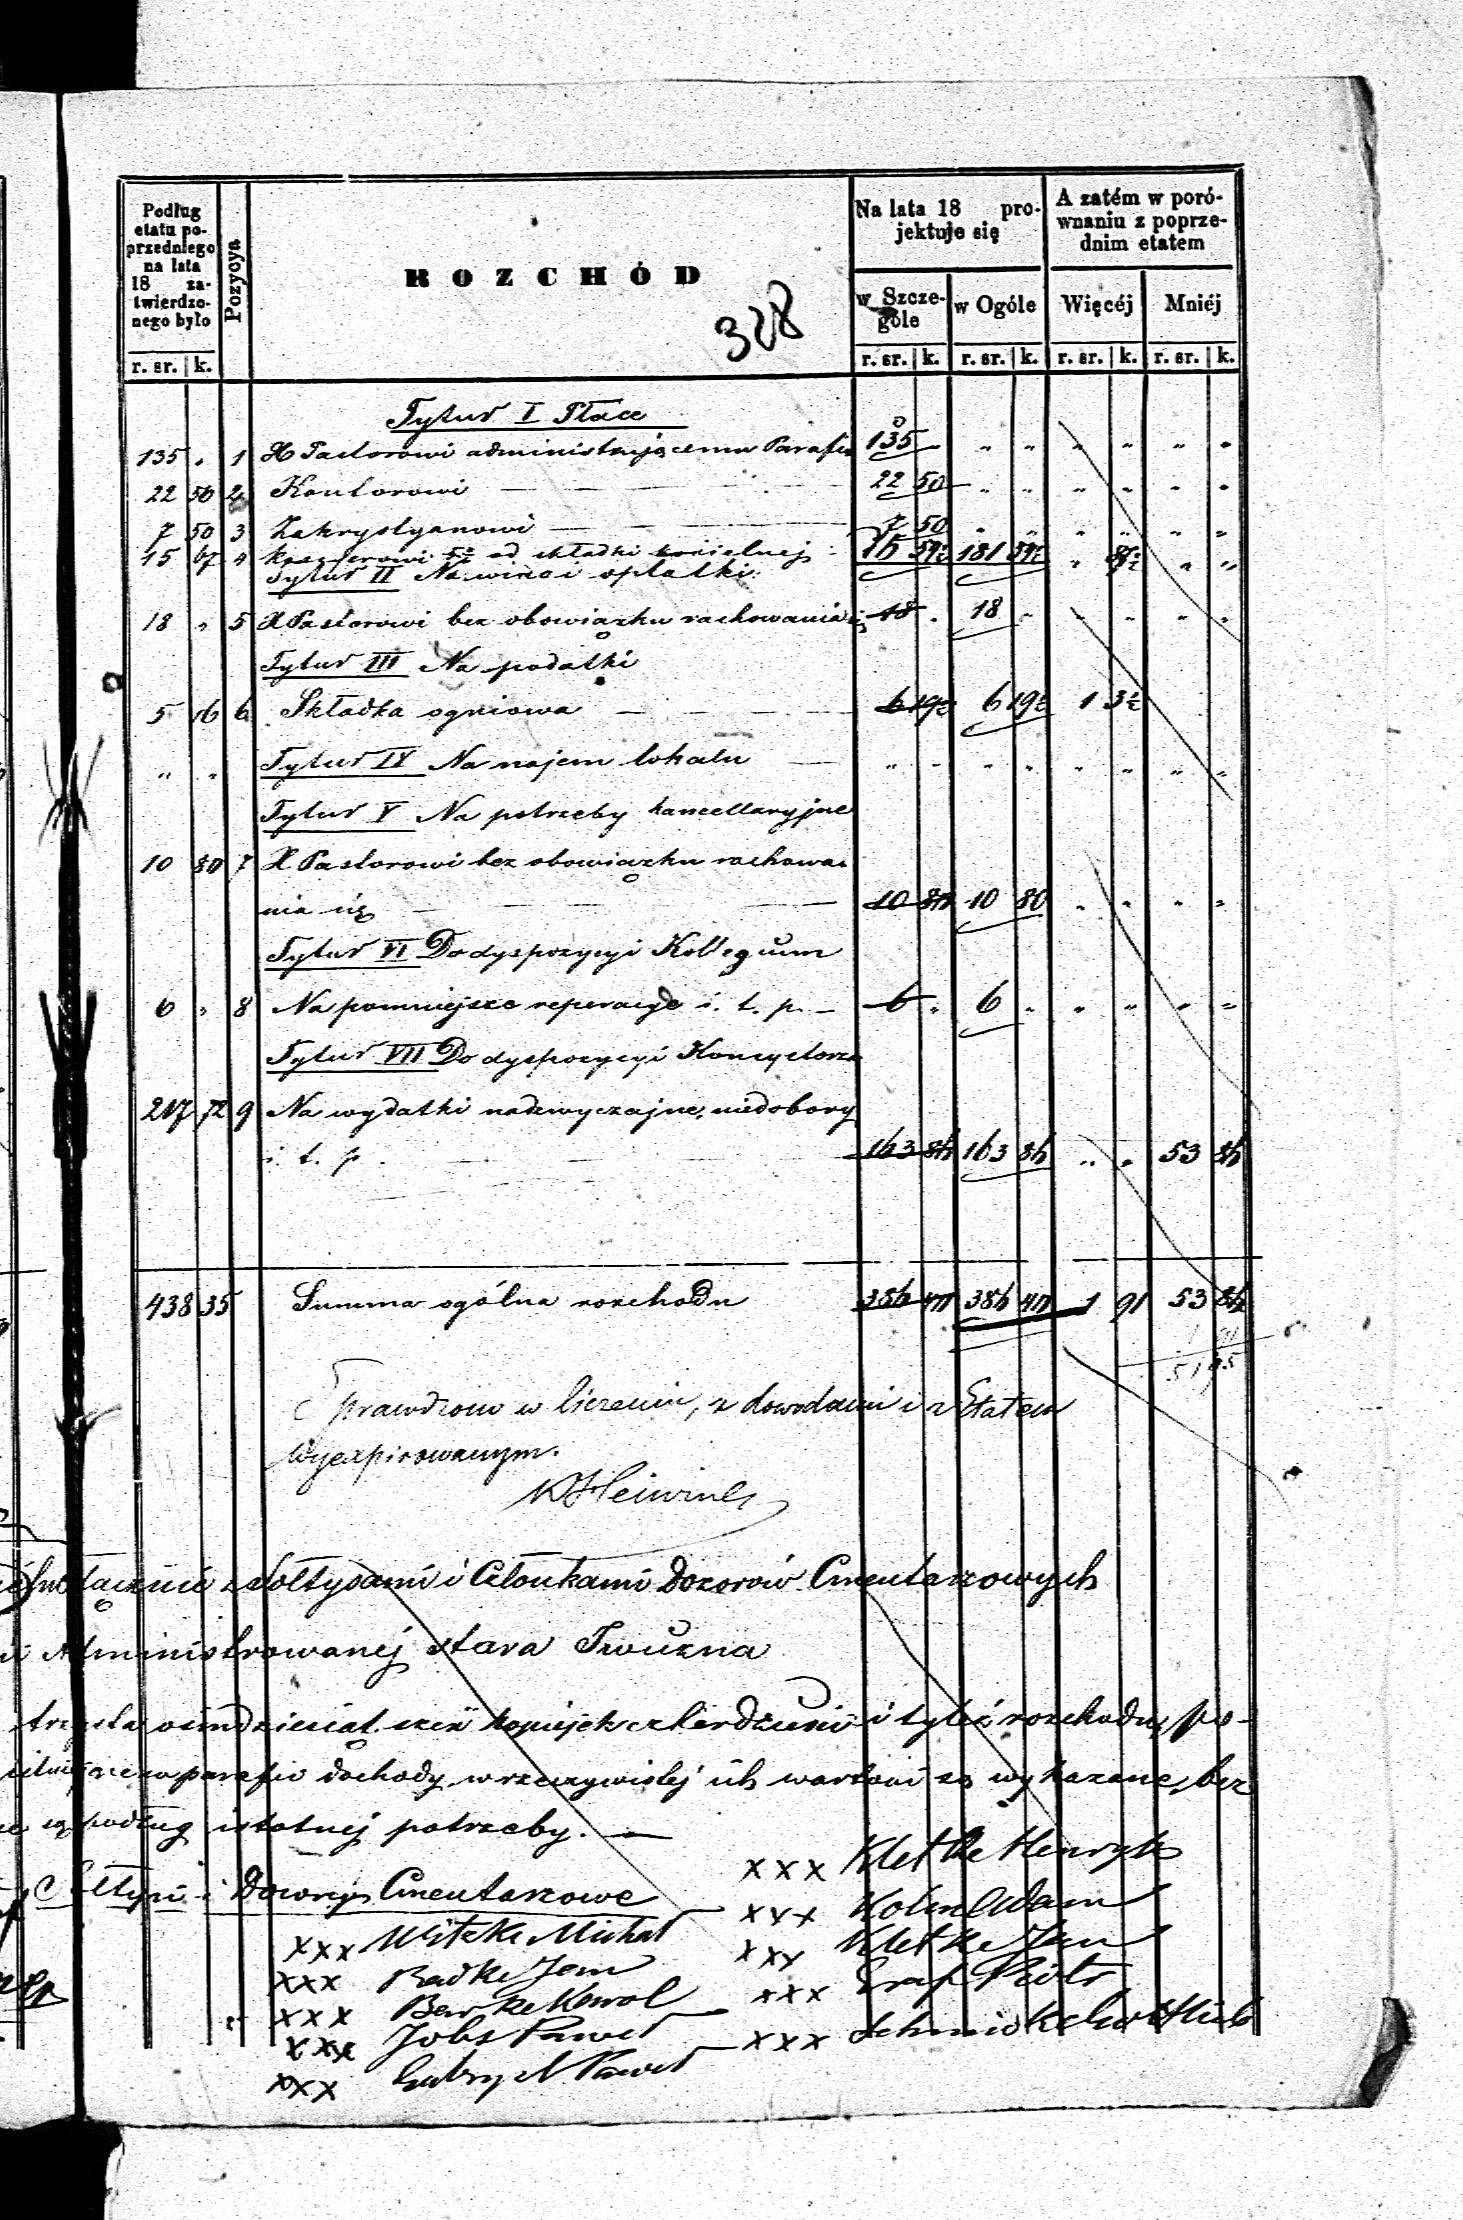 Podług etatu poprzedniego na lata 18 zatwierdzonego było
Pozycya
ROZCHÓD
328
Na lata 18 projektuje się
A zatém w porównaniu z poprzednim etatem
w Szczególe
w Ogóle
Więcéj
Mniéj
r. sr. k. r. sr. k. r. sr. k. r. sr. k. r. sr. k.
Tytuł I Płace
135 " 1 X Pastorowi administrującemu Parafią 135 " " " " " "
22 50 2 Kantorowi 22 50 " " " " " "
7 50 3 Zakrystyanowi 7 50 " " " " " "
15 67 4 Kassyerowi od składki kościelnej 181
Tytuł II Na wino i opłatki
18 " 5 X Pastorowi bez obowiązku rachowania się 18 " 18 " " " " "
Tytuł III Na podatki
5 16 6 Składka ogniowa 6 19½ 6 19½ 1 3½
" " Tytuł IV Na najem lokalu " " " " " " " "
Tytuł V Na potrzeby kancellaryjne
10 80 7 X Pastorowi bez obowiązku rachowa-
nia się 10 80 10 80 " " " "
Tytuł VI Do dyspozycyi Kollegium
6 " 8 Na pomniejsze reperacye i. t. p. 6 " 6 " " " " "
Tytuł VII Do dyspozycyi Konsystorza
217 72 9 Na wydatki nadzwyczajne, niedobory
i. t. p. 163 86 163 86 " " 53 86
438 35 Summa ogólna rozchodu 386 40 386 40 1 91 53 86
1 91
51 95
Sprawdzono w liczeniu, z dowodami i z Etatem
wyexpirowanym.
Sołtysami i Członkami Dozorów Cmentarzowych
Administrowanej stara
trzysta ośmdziesiąt sześć kopiejek czterdzieści i tyleż rozchodu, po-
parafii dochody w rzeczywistej ich wartości są wykazane, bez
podług istotnej potrzeby.
Sołtysi i Dozory Cmentarzowe
xxx Kletke Henryk
xxx Witzke Michał
xxx Kohn Adam
xxx Radke Jan
xxx Kletke Jan
xxx Karol
xxx Graf Piotr
xxx Jobs Paweł
xxx Schmidke Gottlieb
xxx Gabrych Paweł